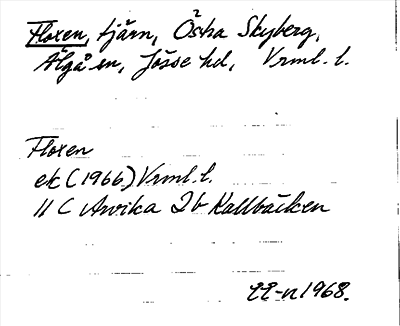 Floxen, tjärn, Östra Skyberg,
Älgå sn, Jösse hd, Vrml. l.
Floxen
ek (1966) Vrml. l.
11 C Arvika 2b Kallbäcken
1968.